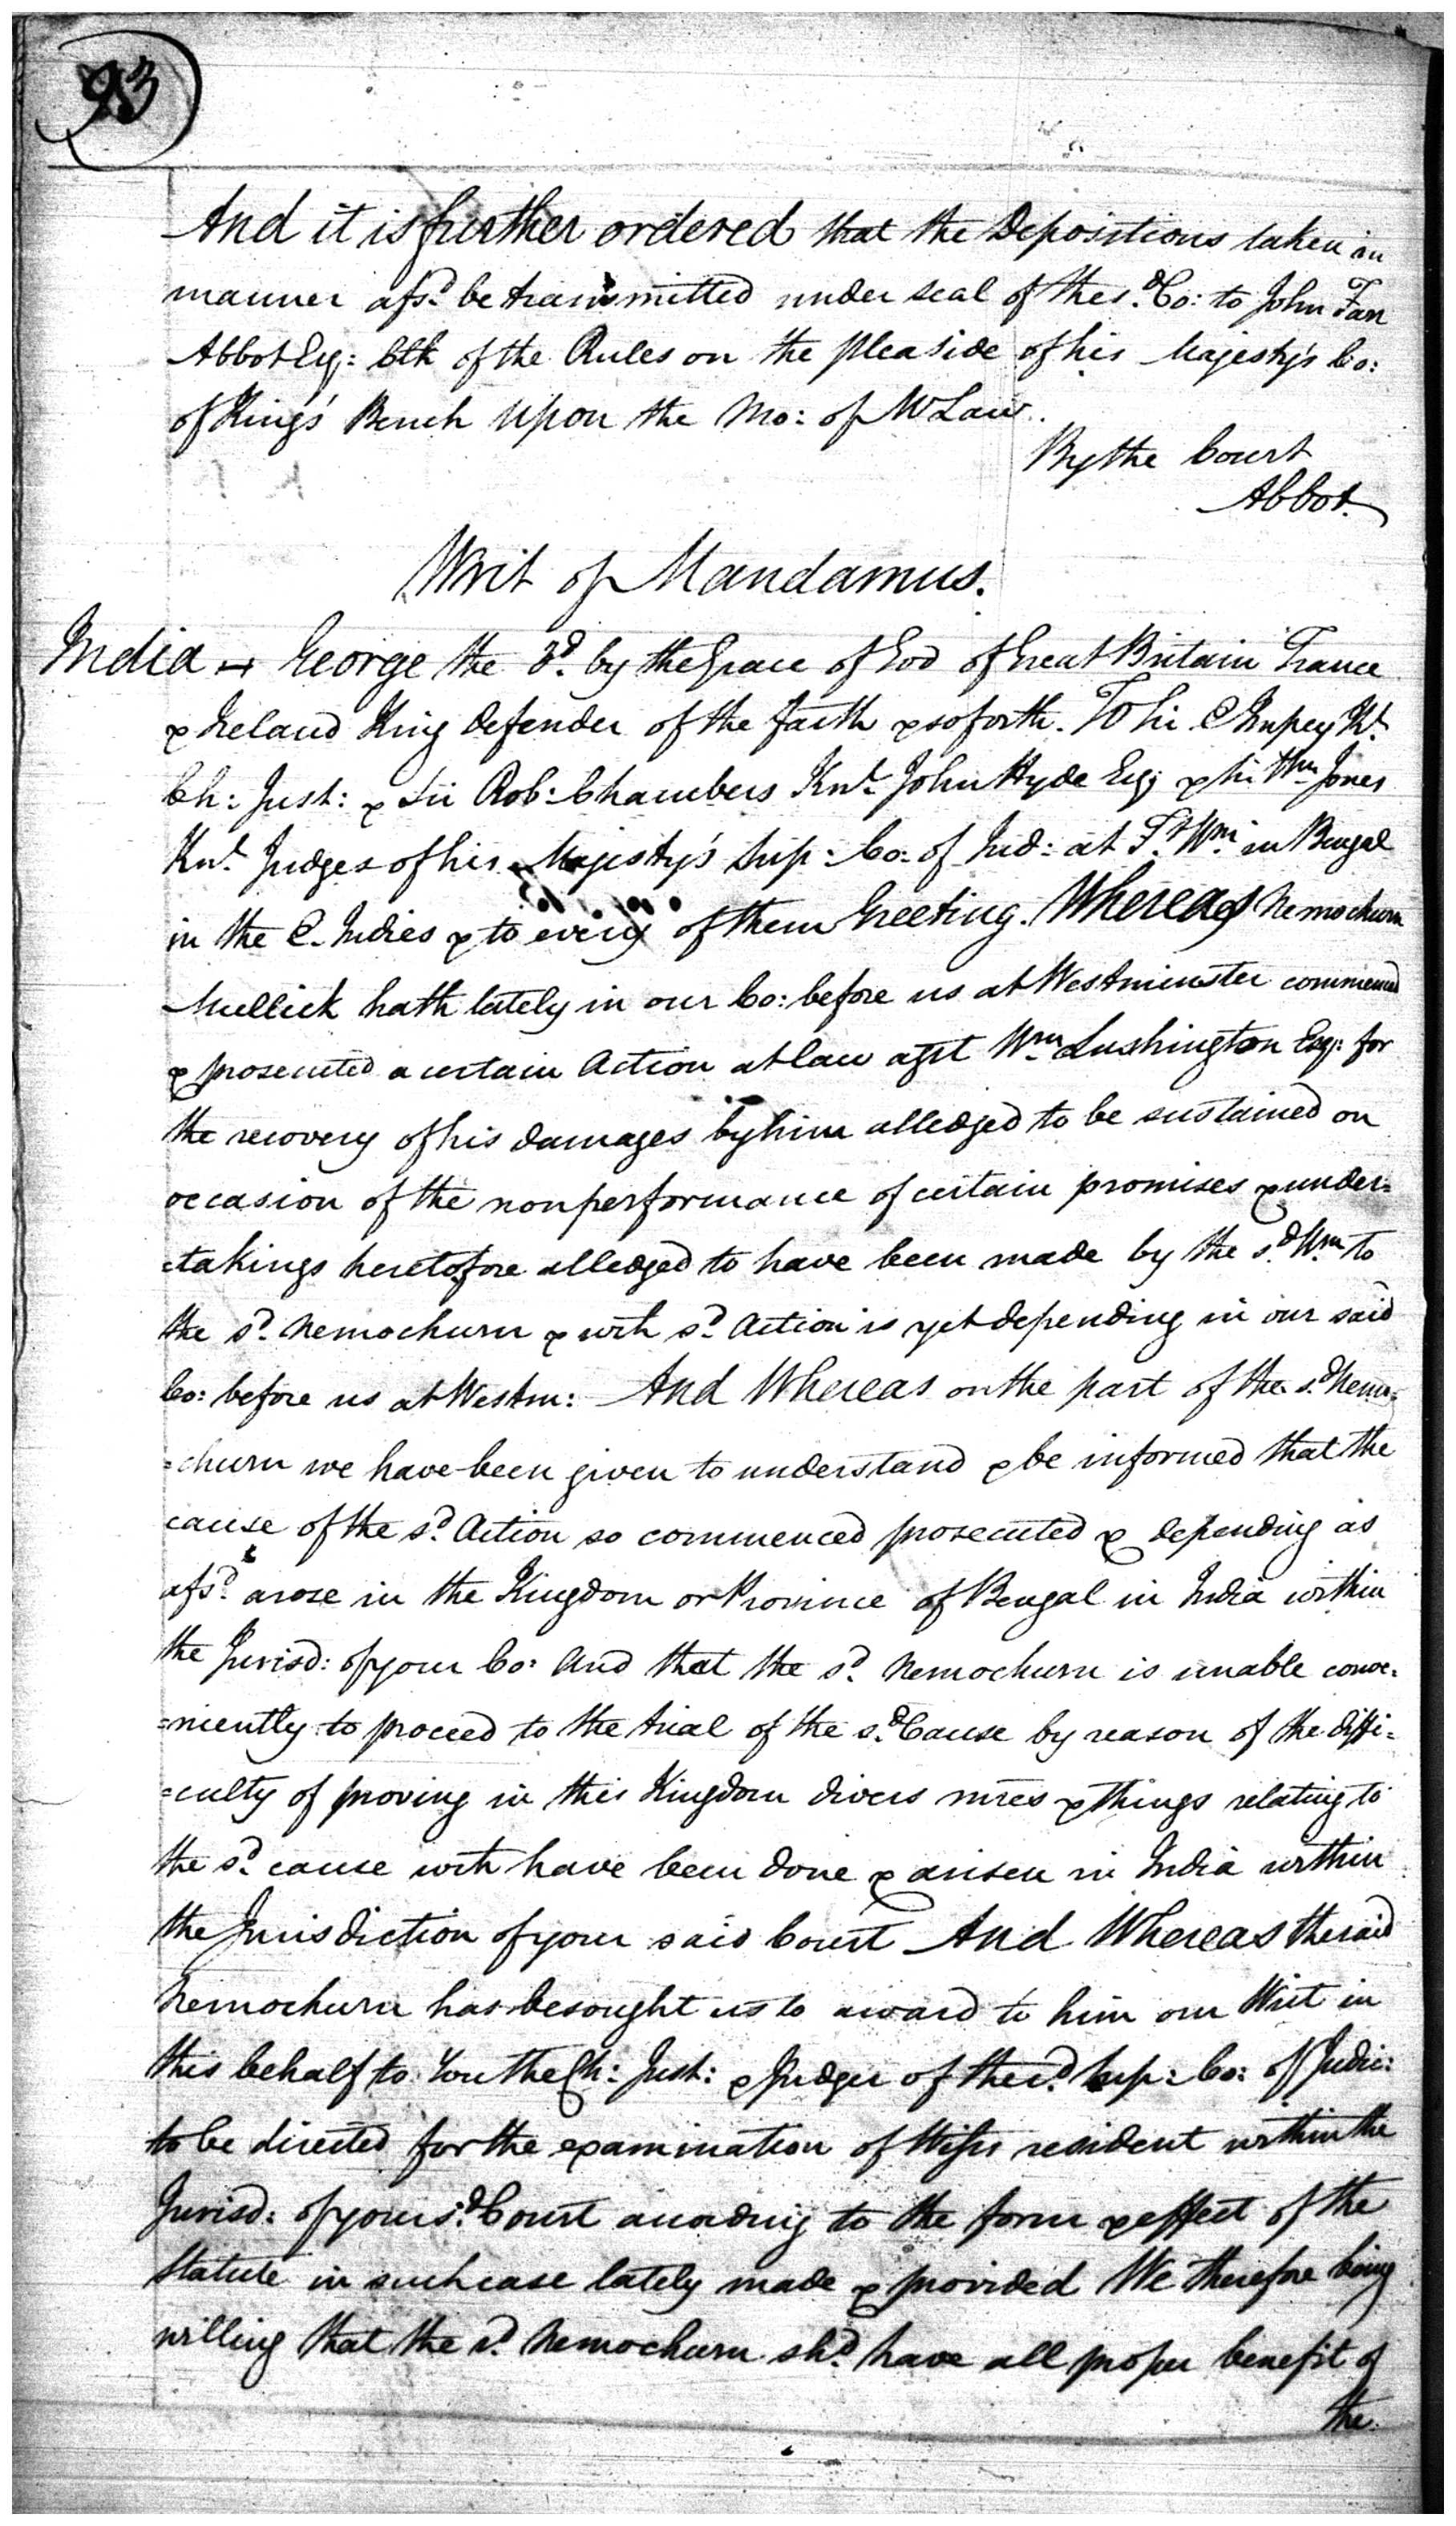 93
And it is further ordered that the Depositions taken in
manner afsd. be transmitted under seal of the sd. Co: to John Farr
Abbot Esq: Clk of the Rules on the plea side of his Majesty's Co:
of King's Bench Upon the Mo: of Mr Law.
By the Court
Abbot.
Writ of Mandamus.
India George the 3d. by the Grace of God of Great Britain France
& Ireland King defender of the faith & so forth. To Sir E Impey Kt.
Ch: Just: & Sir Rob: Chambers Knt. John Hyde Esq: & Sir Wm Jones
Knt. Judges of his Majesty's Sup: Co: of Jud: at Ft. Wm. in Bengal
in the E. Indies & to every of them Greeting. Whereas Nemochurn
Mullick hath lately in our Co: before us at Westminster commenced
& prosecuted a certain Action at law agst Wm. Lushington Esq: for
the recovery of his damages by him alledged to be sustained on
occasion of the nonperformance of certain promises & under=
=takings heretofore alledged to have been made by the sd. Wm. to
the sd. Nemochurn & wch sd. Action is yet depending in our said
Co: before us at Westm: And Whereas on the part of the sd. Nemo=
=churn we have been given to understand & be informed that the
cause of the sd. Action so commenced prosecuted & depending as
afsd. arose in the Kingdom or Province of Bengal in India within
the Jurisd: of your Co: And that the sd. Nemochurn is unable conve=
=niently to proceed to the trial of the sd. Cause by reason of the diffi=
=culty of proving in this Kingdom divers mres & things relating to
the sd. cause wch have been done & arisen in India within
the Jurisdiction of your said Court And Whereas the said
Nemochurn has besought us to award to him our Writ in
this behalf to You the Ch: Just: & Judges of the sd. Sup: Co: of Judic:
to be directed for the examination of Wifses resident within the
Jurisd: of your sd. Court according to the form & effect of the
Statute in such case lately made & provided We therefore being
willing that the sd. Nemochurn shd. have all proper benefit of
the